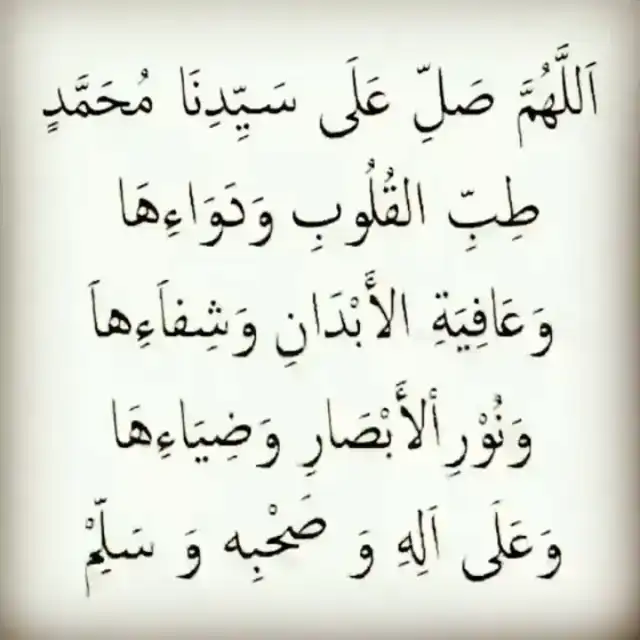 اَللَّهُمَّ صَلِّ عَلَى سَيِّدِنَا مُحَمَّدٍ
طِبِّ القُلُوبِ وَدَوَاءِهَا
وَعَافِيَةِ الأَبْدَانِ وَشِفاَءِهاَ
وَنُوْرِ ألأَبْصَارِ وَضِيَاءِهَا
وَعَلَى اَلِهِ وَ صَحْبِه وَ سَلِّمْ